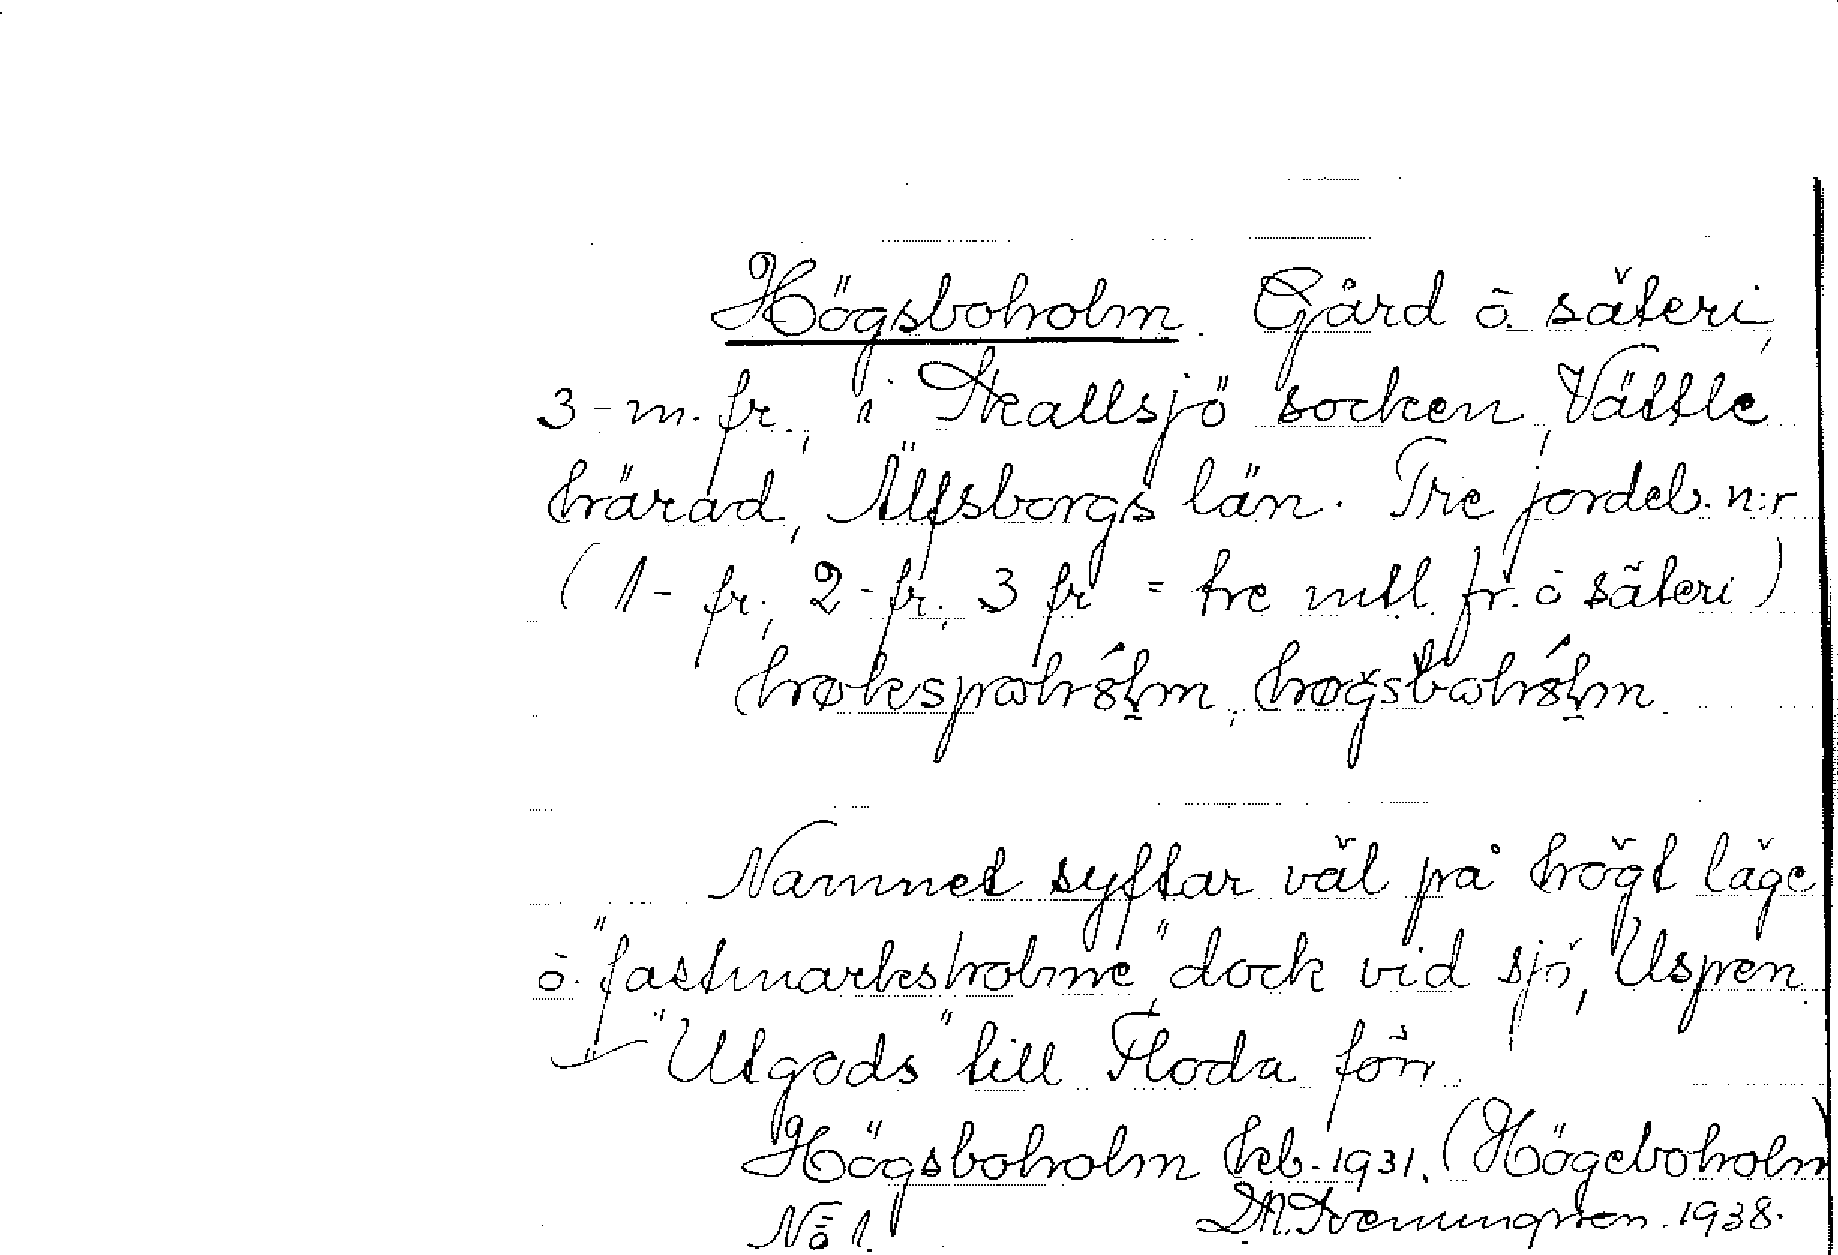 Högsboholm. Gård o. säteri,
3-m. fr., i Skallsjö socken, Vättle
härad, Älfsborgs län. Tre jordeb. n:r
(1- fr., 2- fr., 3 fr = tre mtl. fr. o säteri)
høkspωhólm, høgsbωhólm.
Namnet syftar väl på högt läge
o. "fastmarksholme", dock vid sjö, Uspen.
"Utgods" till Floda förr.
Högsboholm kb. 1931. (Högeboholm)
No 1. 1938.